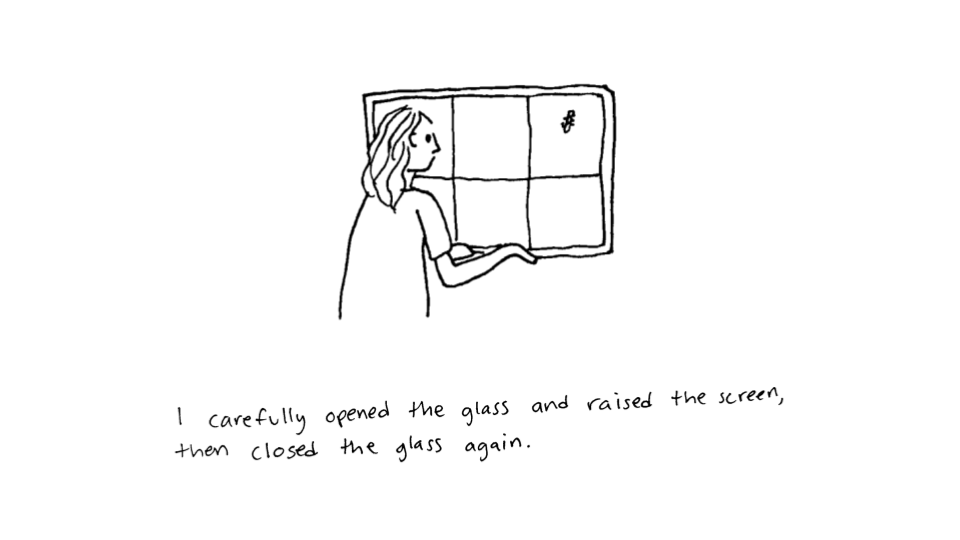 I carefully opened the glass and raised the screen,
then closed the glass again.